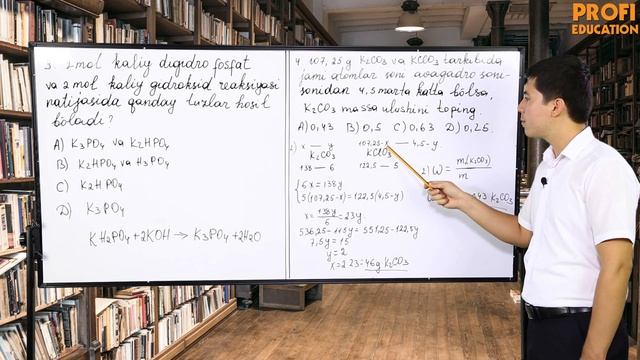 PROFI
EDUCATION
3. 1 mol kaliy digidro fosfat
va 2 mol kaliy gidroksid reaksiyasi
natijasida qanday tuzlar hosil
bo'ladi?
A) K3PO4 va K2HPO4
B) K2HPO4 va H3PO4
C) K2HPO4
D) K3PO4
KH2PO4 + 2KOH → K3PO4 + 2H2O
4. 107,25 g K2CO3 va KClO3 tarkibida
jami atomlar soni avagadro soni-
sonidan 4,5 marta katta bo'lsa,
K2CO3 massa ulushini toping.
A) 0,43 B) 0,5 C) 0,63 D) 0,25.
1) x — y 107,25-x — 4,5-y
K2CO3 KClO3
138 — 6 122,5 — 5
2) W = m(K2CO3)/m
0,43 K2CO3
{ 6x = 138y
5(107,25-x) = 122,5(4,5-y)
x = 138y/6 = 23y
536,25 - 115y = 551,25 - 122,5y
7,5y = 15
y = 2
x = 2·23 = 46g K2CO3